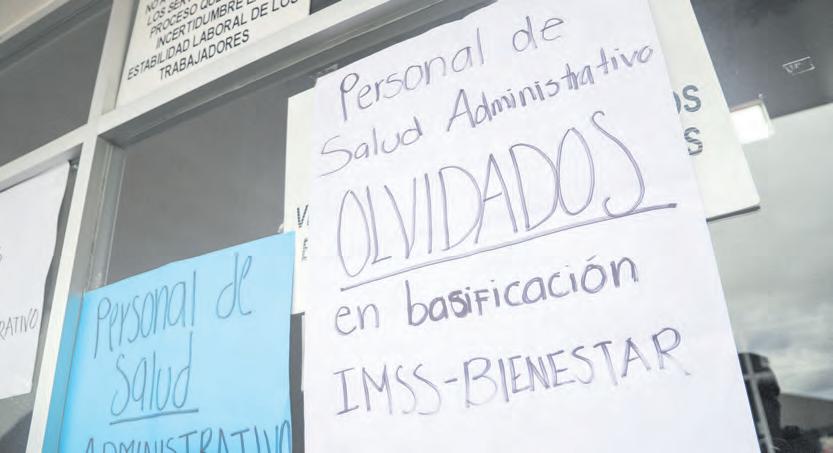 LOS SER
PROCESO QUE
INCERTIDUMBRE
ESTABILIDAD LABORAL DE LOS
TRABAJADORES
Personal de
Salud Administrativo
OLVIDADOS
en basificación
IMSS-BIENESTAR
OS
S
Personal de
Salud
ADMINISTRATIVO
RATIVO